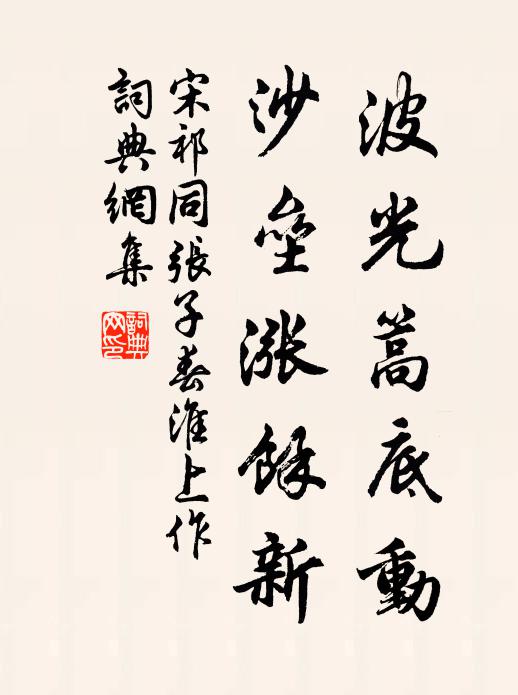 波光篙底動
沙壘漲餘新
宋祁同張子春淮上作
詞典網集
詞典網印